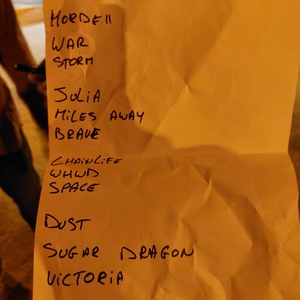 MORDEII
WAR
STORM
JULIA
MILES AWAY
BRAVE
CHAINLIFE
WHWD
SPACE
DUST
SUGAR DRAGON
VICTORIA